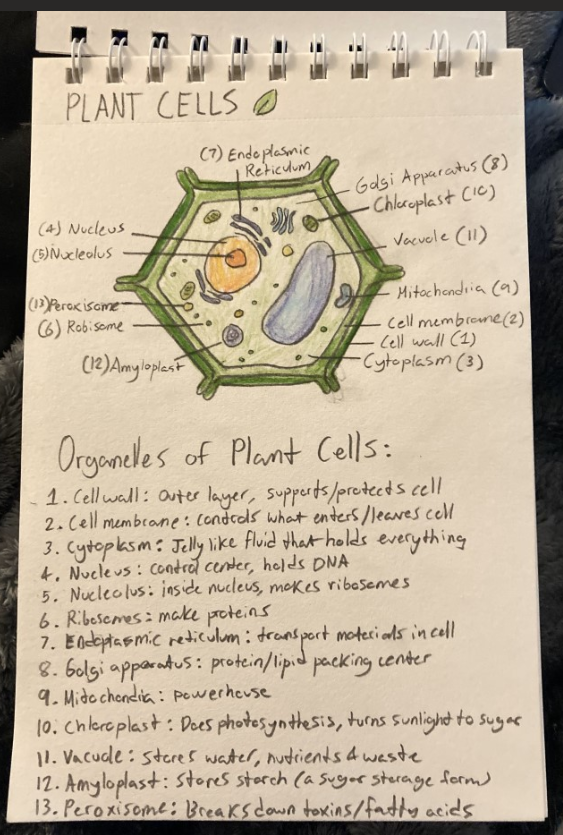 PLANT CELLS
(7) Endoplasmic
Reticulum
Golgi Apparatus (8)
Chloroplast (10)
(4) Nucleus
(5) Nucleolus
Vacuole (11)
(13) Peroxisome
Mitochondria (9)
(6) Robisome
Cell membrane (2)
Cell wall (1)
(12) Amyloplast
Cytoplasm (3)
Organelles of Plant Cells:
1. Cell wall: Outer layer, supports/protects cell
2. Cell membrane: controls what enters/leaves cell
3. Cytoplasm: Jelly like fluid that holds everything
4. Nucleus: control center, holds DNA
5. Nucleolus: inside nucleus, makes ribosomes
6. Ribosomes: make proteins
7. Endoplasmic reticulum: transport materials in cell
8. Golgi apparatus: protein/lipid packing center
9. Mitochondria: powerhouse
10. Chloroplast: Does photosynthesis, turns sunlight to sugar
11. Vacuole: stores water, nutrients & waste
12. Amyloplast: Stores starch (a sugar storage form)
13. Peroxisome: Breaks down toxins/fatty acids